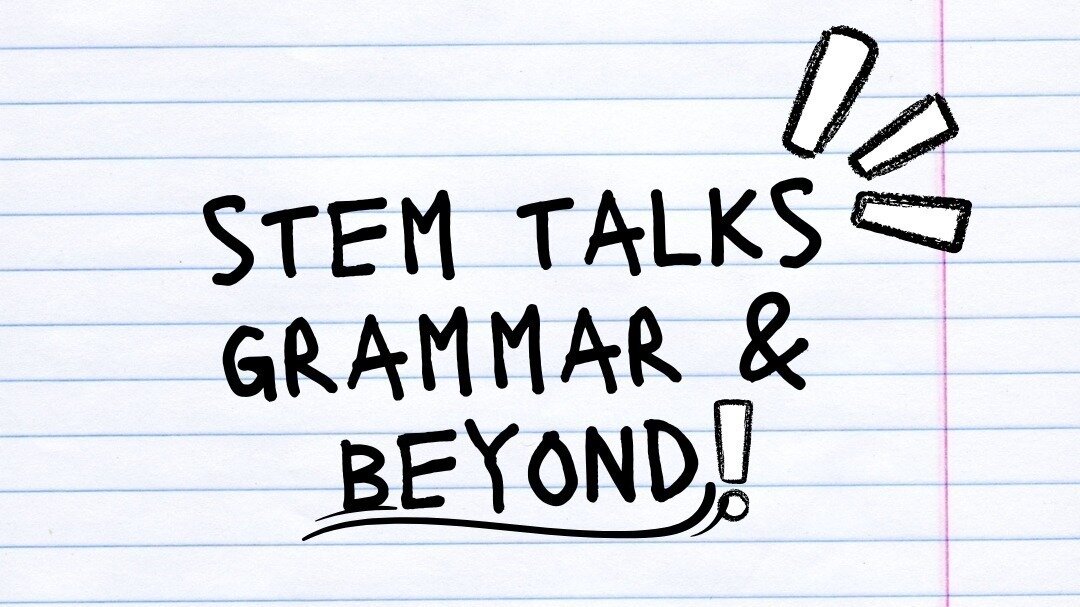 STEM TALKS
GRAMMAR &
BEYOND!